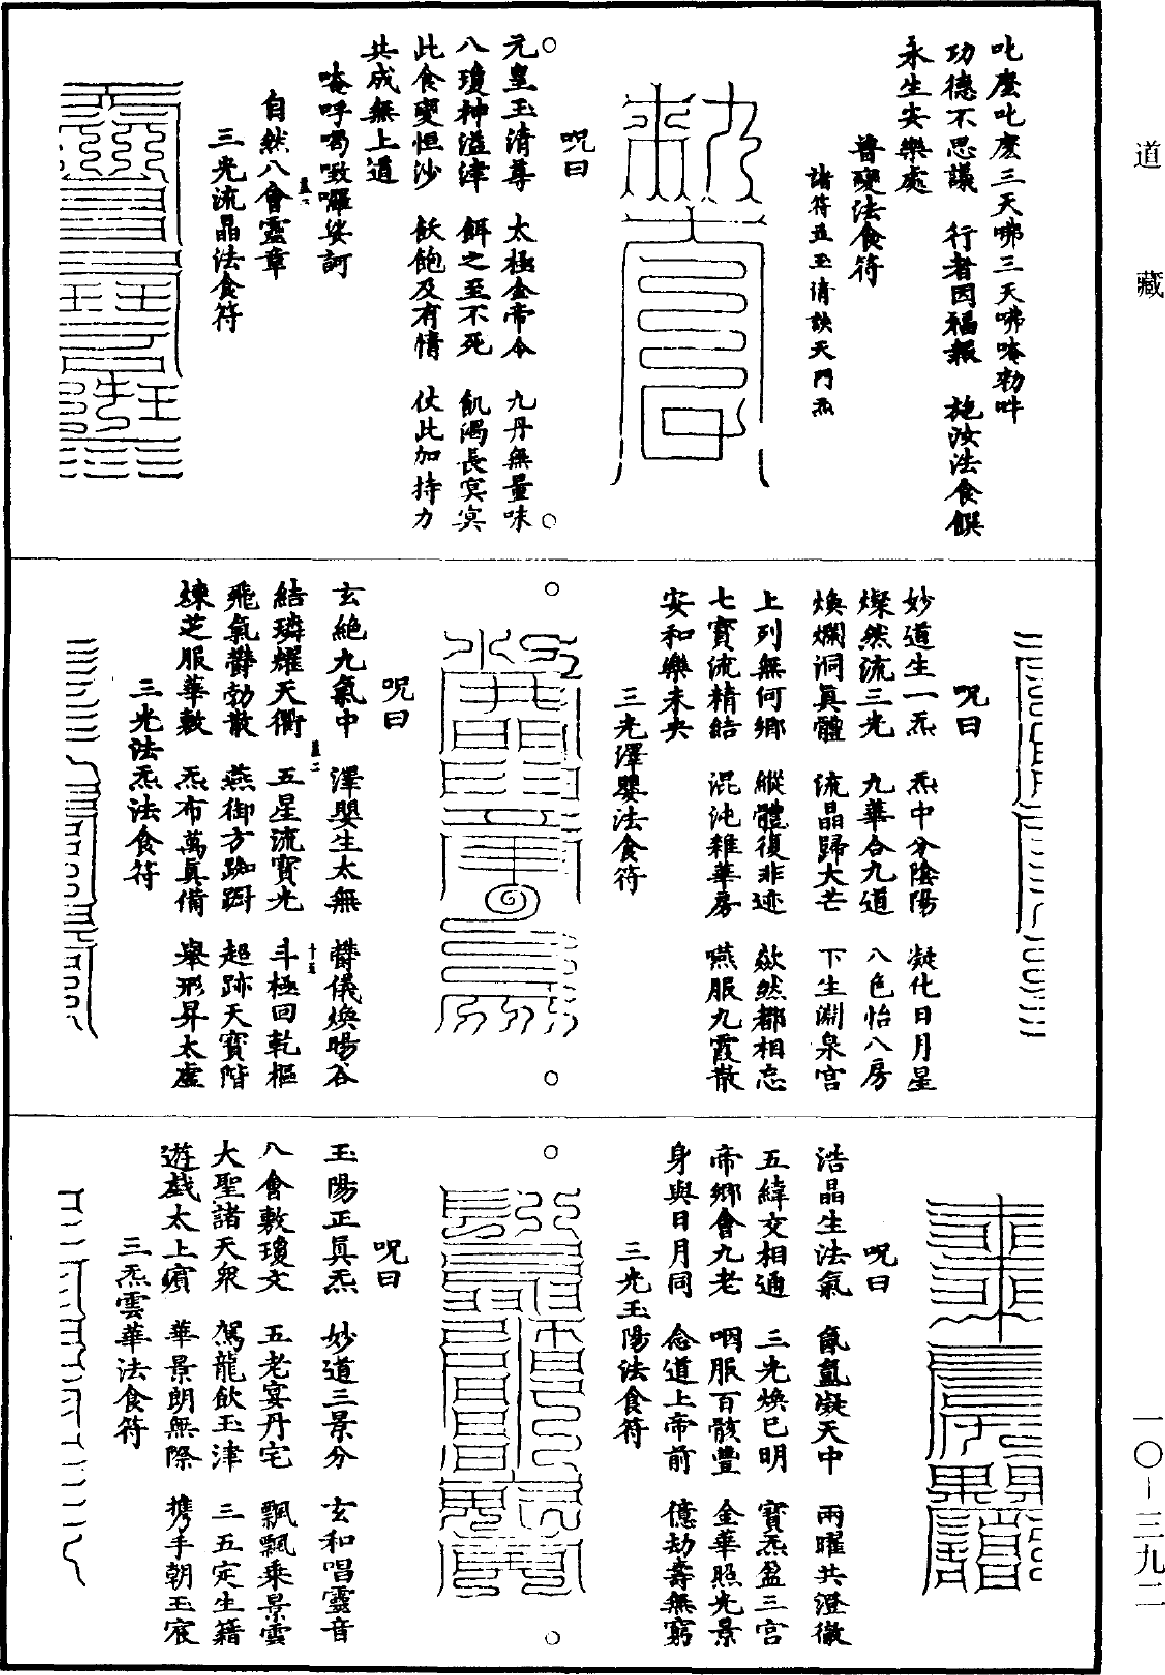 道藏
一〇–三九二
叱麼叱麼三天咈三天咈唵勑吽
功德不思議　行者因福報　施汝法食饌
永生安樂處
普變法食符
諸符並玉清訣天門炁
呪曰
元皇玉清尊　太極金帝令　九丹無量味
八瓊神溢津　餌之至不死　飢渴長冥冥
此食變恒沙　飫飽及有情　仗此加持力
共成無上道
唵呼喝㗌囉娑訶
自然八會靈章
三光流晶法食符
呪曰
妙道生一炁　炁中分陰陽　凝化日月星
燦然流三光　九華合九道　八色怡八房
煥爛洞真體　流晶歸大芒　下生淵泉宫
上列無何鄉　縱體復非迹　歘然都相忘
七寶流精結　混沌雜華房　嚥服九霞散
安和樂未央
三光澤嬰法食符
呪曰
玄絶九氣中　澤嬰生太無　欝儀煥暘谷
結璘耀天衢　五星流寶光　斗極回乾樞
飛氣欝勃散　燕御方踟蹰　超跡天寶階
煉芝服華敷　炁布萬真備　舉形昇太虛
三光法炁法食符
呪曰
浩晶生法氣　氤氲凝天中　兩曜共澄徹
五緯交相通　三光煥已明　寶炁盈三宫
帝鄉會九老　咽服百骸豐　金華照光景
身與日月同　念道上帝前　億劫壽無窮
三光玉陽法食符
呪曰
玉陽正真炁　妙道三景分　玄和唱靈音
八會敷瓊文　五老宴丹宅　飄飄乘景雲
大聖諸天衆　駕龍飲玉津　三五定生籍
遊戲太上賓　華景朗無際　携手朝玉宸
三炁雲華法食符